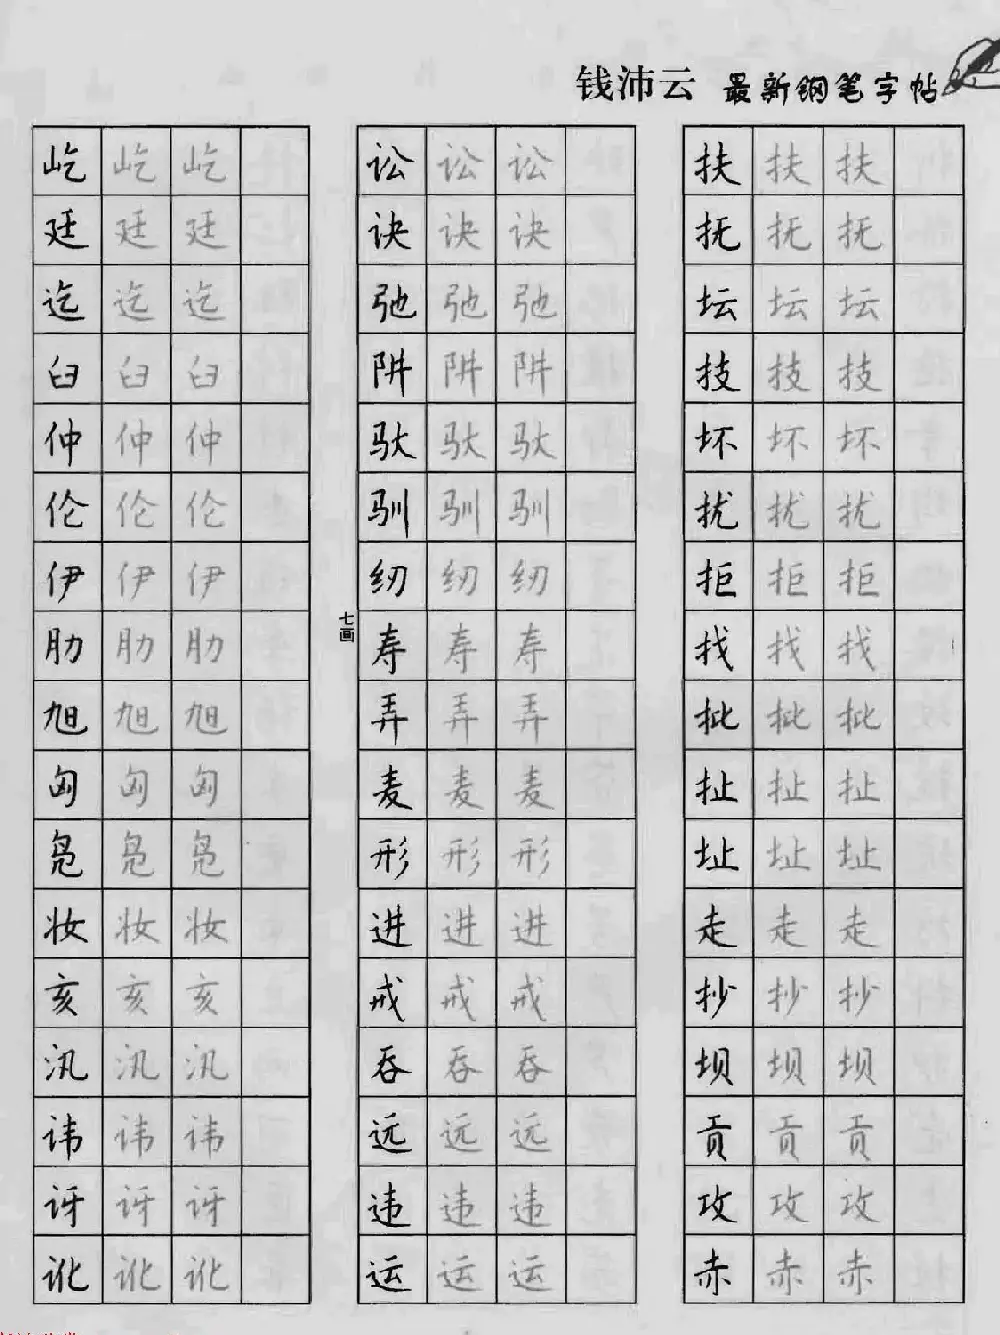 钱沛云 最新钢笔字帖
屹 屹 屹
廷 廷 廷
迄 迄 迄
臼 臼 臼
仲 仲 仲
伦 伦 伦
伊 伊 伊
肋 肋 肋
旭 旭 旭
匈 匈 匈
凫 凫 凫
妆 妆 妆
亥 亥 亥
汛 汛 汛
讳 讳 讳
讶 讶 讶
讹 讹 讹
讼 讼 讼
诀 诀 诀
弛 弛 弛
阱 阱 阱
驮 驮 驮
驯 驯 驯
纫 纫 纫
七画
寿 寿 寿
弄 弄 弄
麦 麦 麦
形 形 形
进 进 进
戒 戒 戒
吞 吞 吞
远 远 远
违 违 违
运 运 运
扶 扶 扶
抚 抚 抚
坛 坛 坛
技 技 技
坏 坏 坏
扰 扰 扰
拒 拒 拒
找 找 找
批 批 批
扯 扯 扯
址 址 址
走 走 走
抄 抄 抄
坝 坝 坝
贡 贡 贡
攻 攻 攻
赤 赤 赤